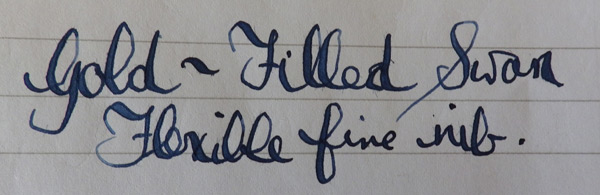 Gold ~ Filled Swan
Flexible fine nib.